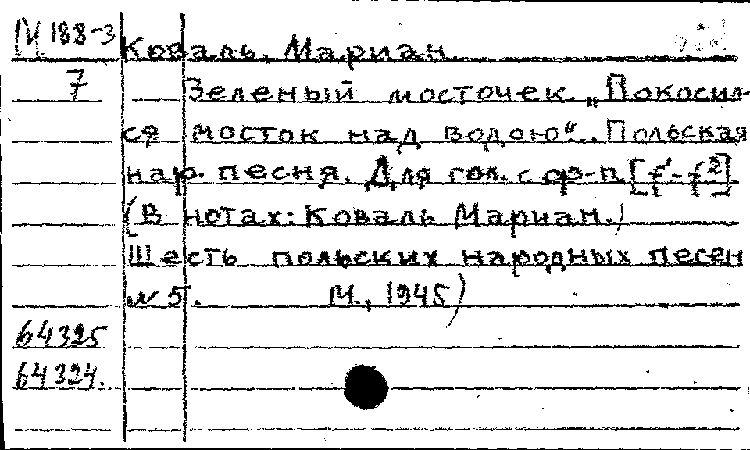 М 188-3 Коваль, Мариан
7 Зеленый мосточек. „Покосил-
ся мосток над водою“. Польская
нар. песня. Для гол. с ф-п. [f¹-f²]
(В нотах: Коваль Мариан.)
Шесть польских народных песен
№ 5. М., 1945)
64325
64324.